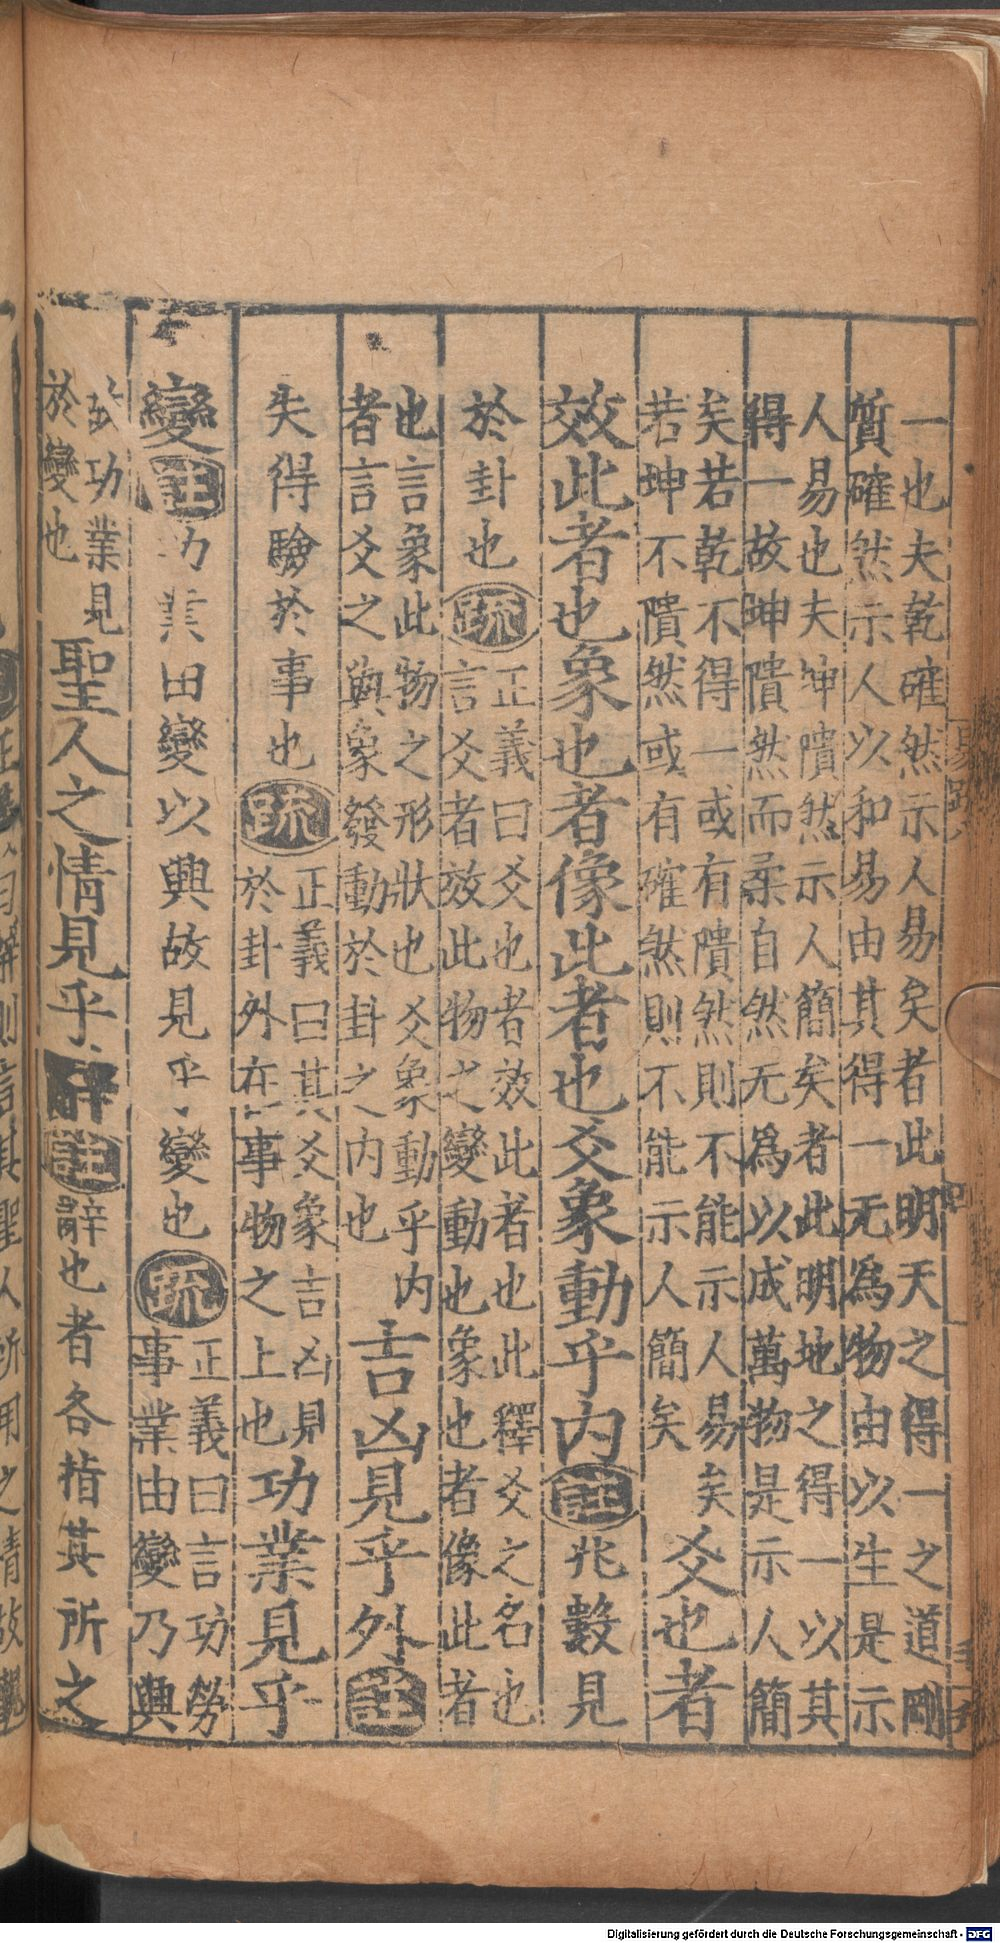 一也夫乾確然示人易矣者此明天之得一之道剛
質確然示人以和易由其得一无爲物由以生是示
人易也夫坤隤然示人簡矣者此明地之得一以其
得一故坤隤然而柔自然无爲以成萬物是示人簡
矣若乾不得一或有隤然則不能示人易矣
若坤不隤然或有確然則不能示人簡矣
爻也者
效此者也象也者像此者也爻象動乎内註兆數見
於卦也疏
正義曰爻也者效此者也此釋爻之名也
言爻者效此物之變動也象也者像此者
也言象此物之形狀也爻象動乎内
者言爻之與象發動於卦之内也
吉凶見乎外註
失得驗於事也疏
正義曰其爻象吉凶見
於卦外在事物之上也
功業見乎
變註功業由變以興故見乎變也疏
正義曰言功勞
事業由變乃興
故功業見
於變也
聖人之情見乎辭註辭也者各指其所之
Digitalisierung gefördert durch die Deutsche Forschungsgemeinschaft - DFG